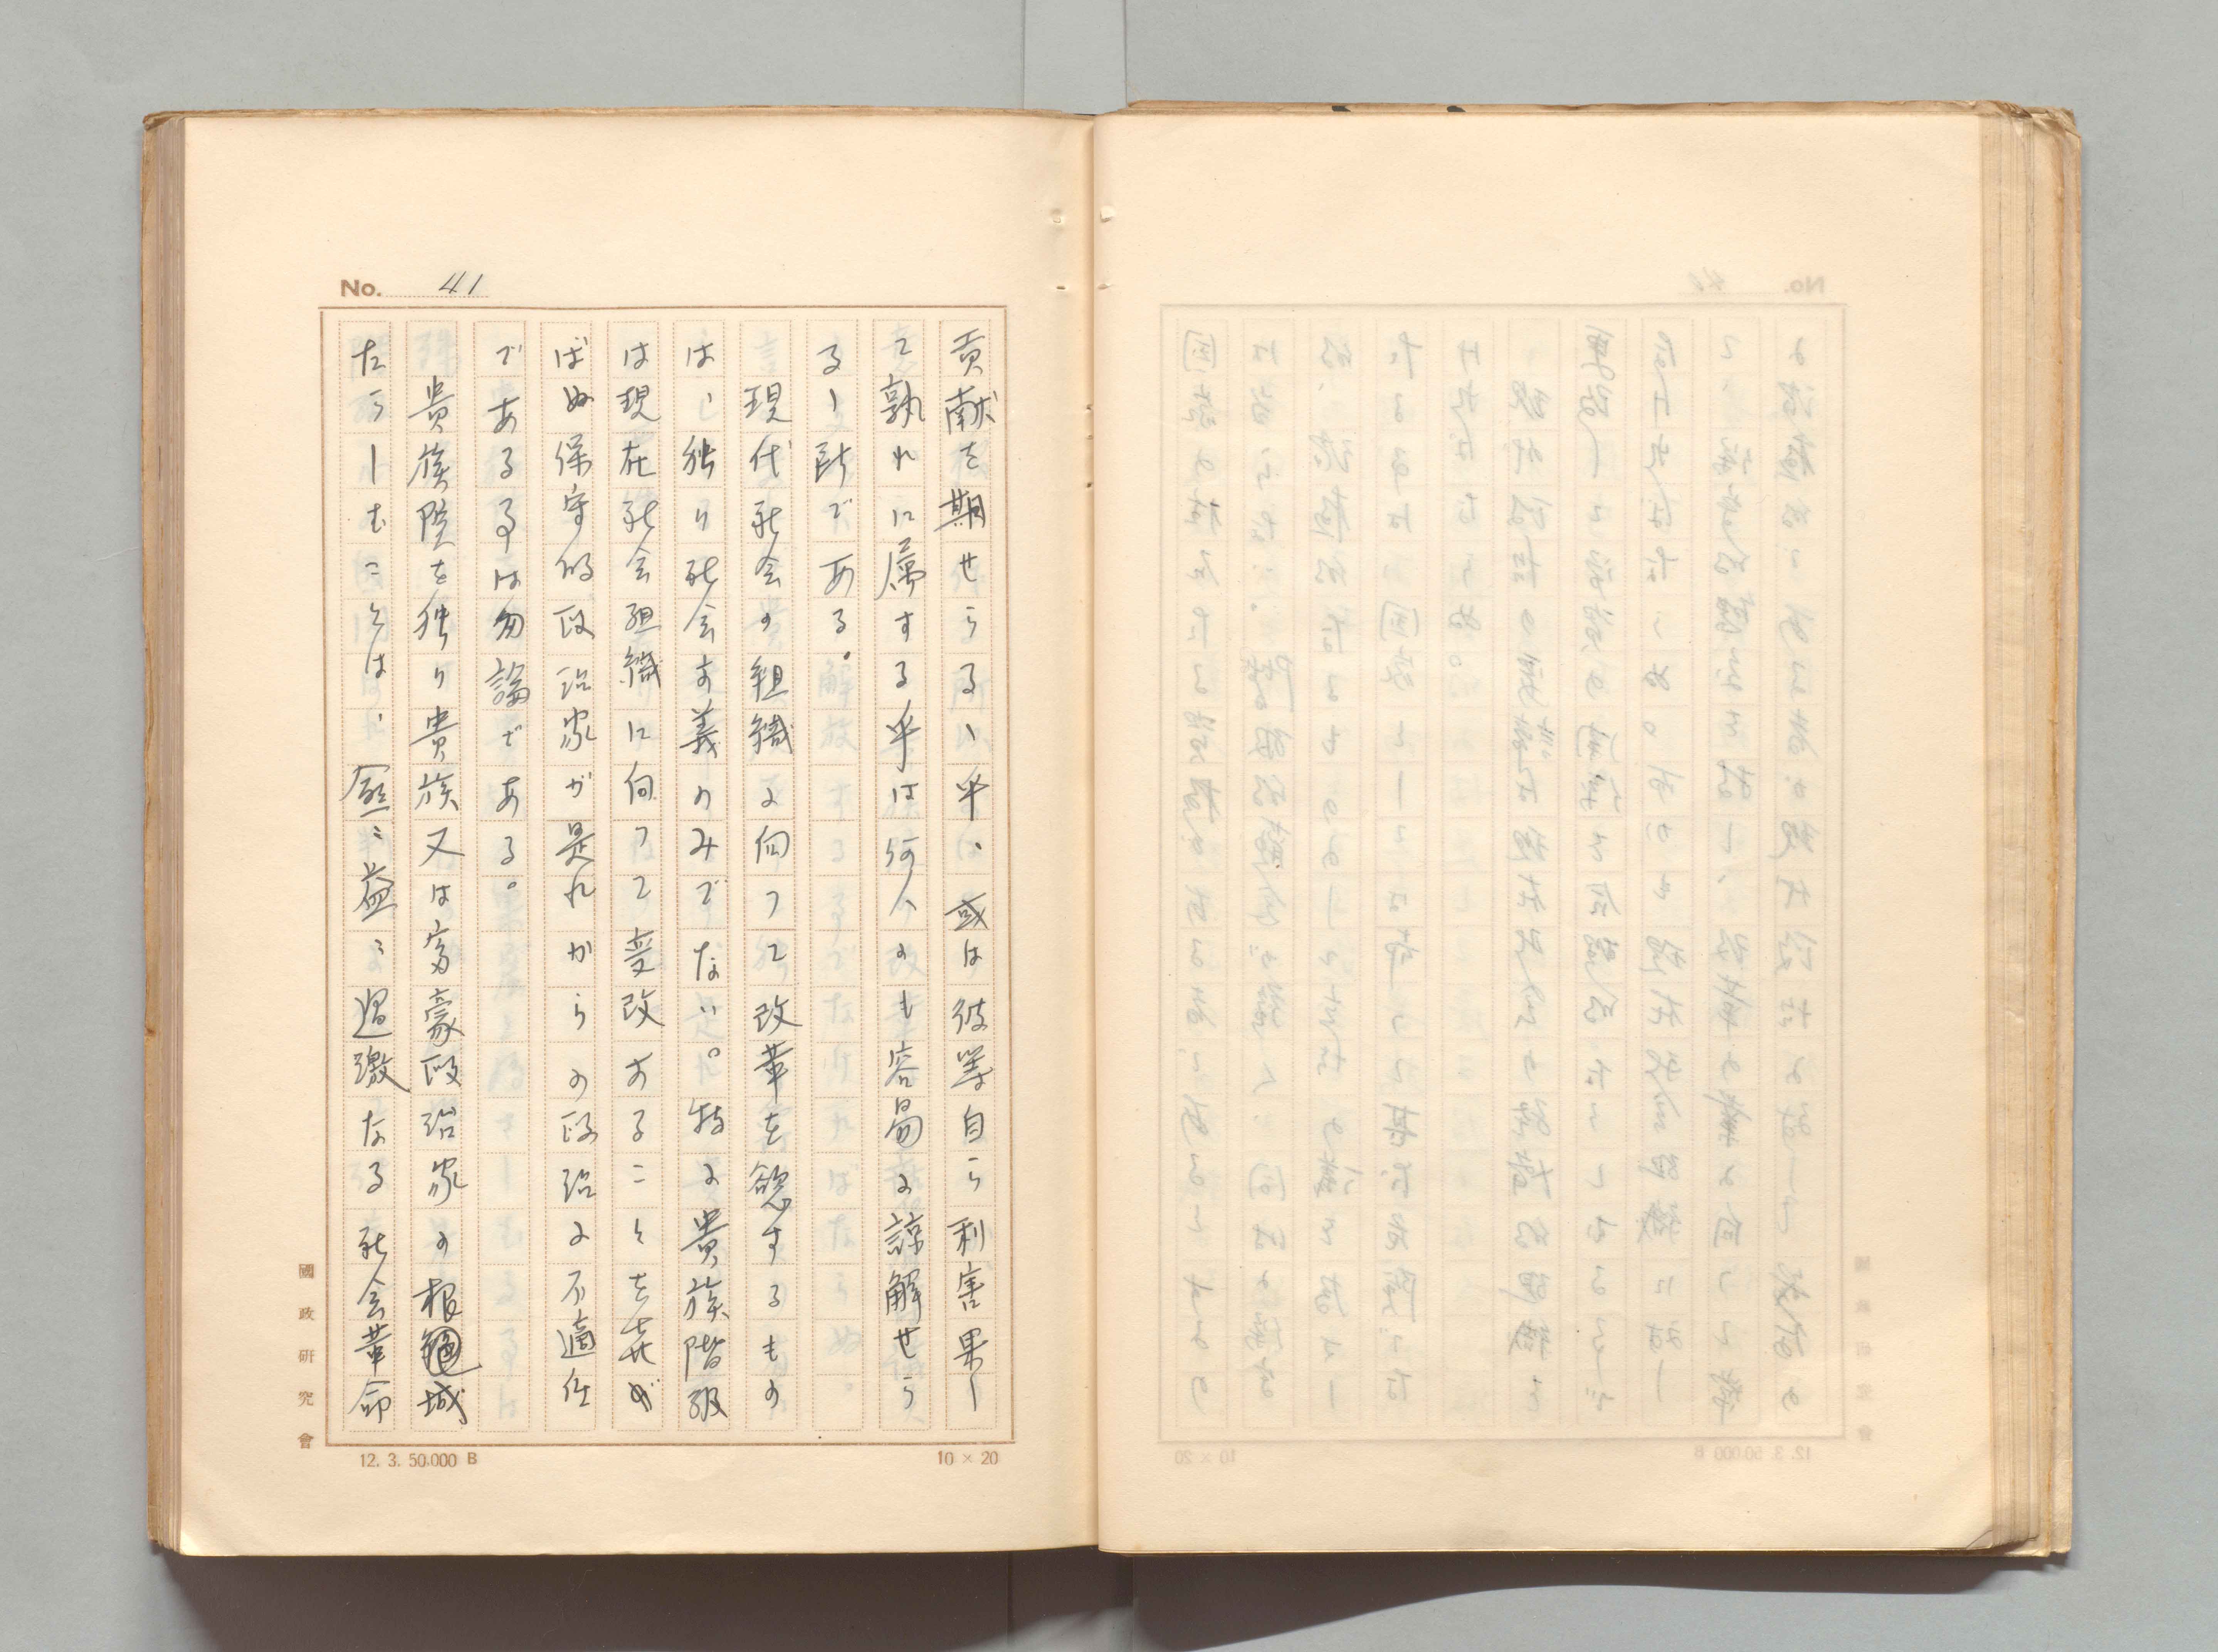 No. 41
貢献を期せらるゝ乎、或は彼等自ら利害果し
て孰れに属する乎は何人のも容易に諒解せら
るゝ所である。
現代社会の組織に向つて改革を慾するもの
は、独り社会主義のみでない。特に貴族階級
は現在社会組織に向つて変改することを喜ば
ばぬ保守的政治家が是れからの政治に不適任
であるは勿論である。
貴族院を独り貴族又は富豪政治家の根城
たらしむことは、愈々益々過激なる社会革命
國政研究會
12. 3. 50.000 B
10 × 20